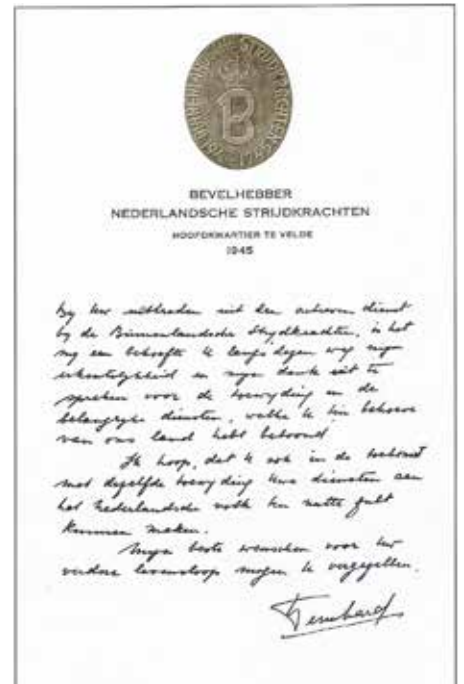 BINNENLANDSCHE STRIJDKRACHTEN
B
1945
BEVELHEBBER
NEDERLANDSCHE STRIJDKRACHTEN
HOOFDKWARTIER TE VELDE
1945
By Uw uittreden uit den actieven dienst
by de Binnenlandsche Strydkrachten, is het
my een behoefte U langs dezen weg myn
erkentelykheid en myn dank uit te
spreken voor de toewyding en de
belangryke diensten, welke U ten behoeve
van ons land hebt betoond.
Ik hoop, dat U ook in de toekomst
met dezelfde toewyding Uwe diensten aan
het Nederlandsche volk ten nutte zult
kunnen maken.
Myn beste wenschen voor Uw
verdere levensloop mogen U vergezellen.
Bernhard